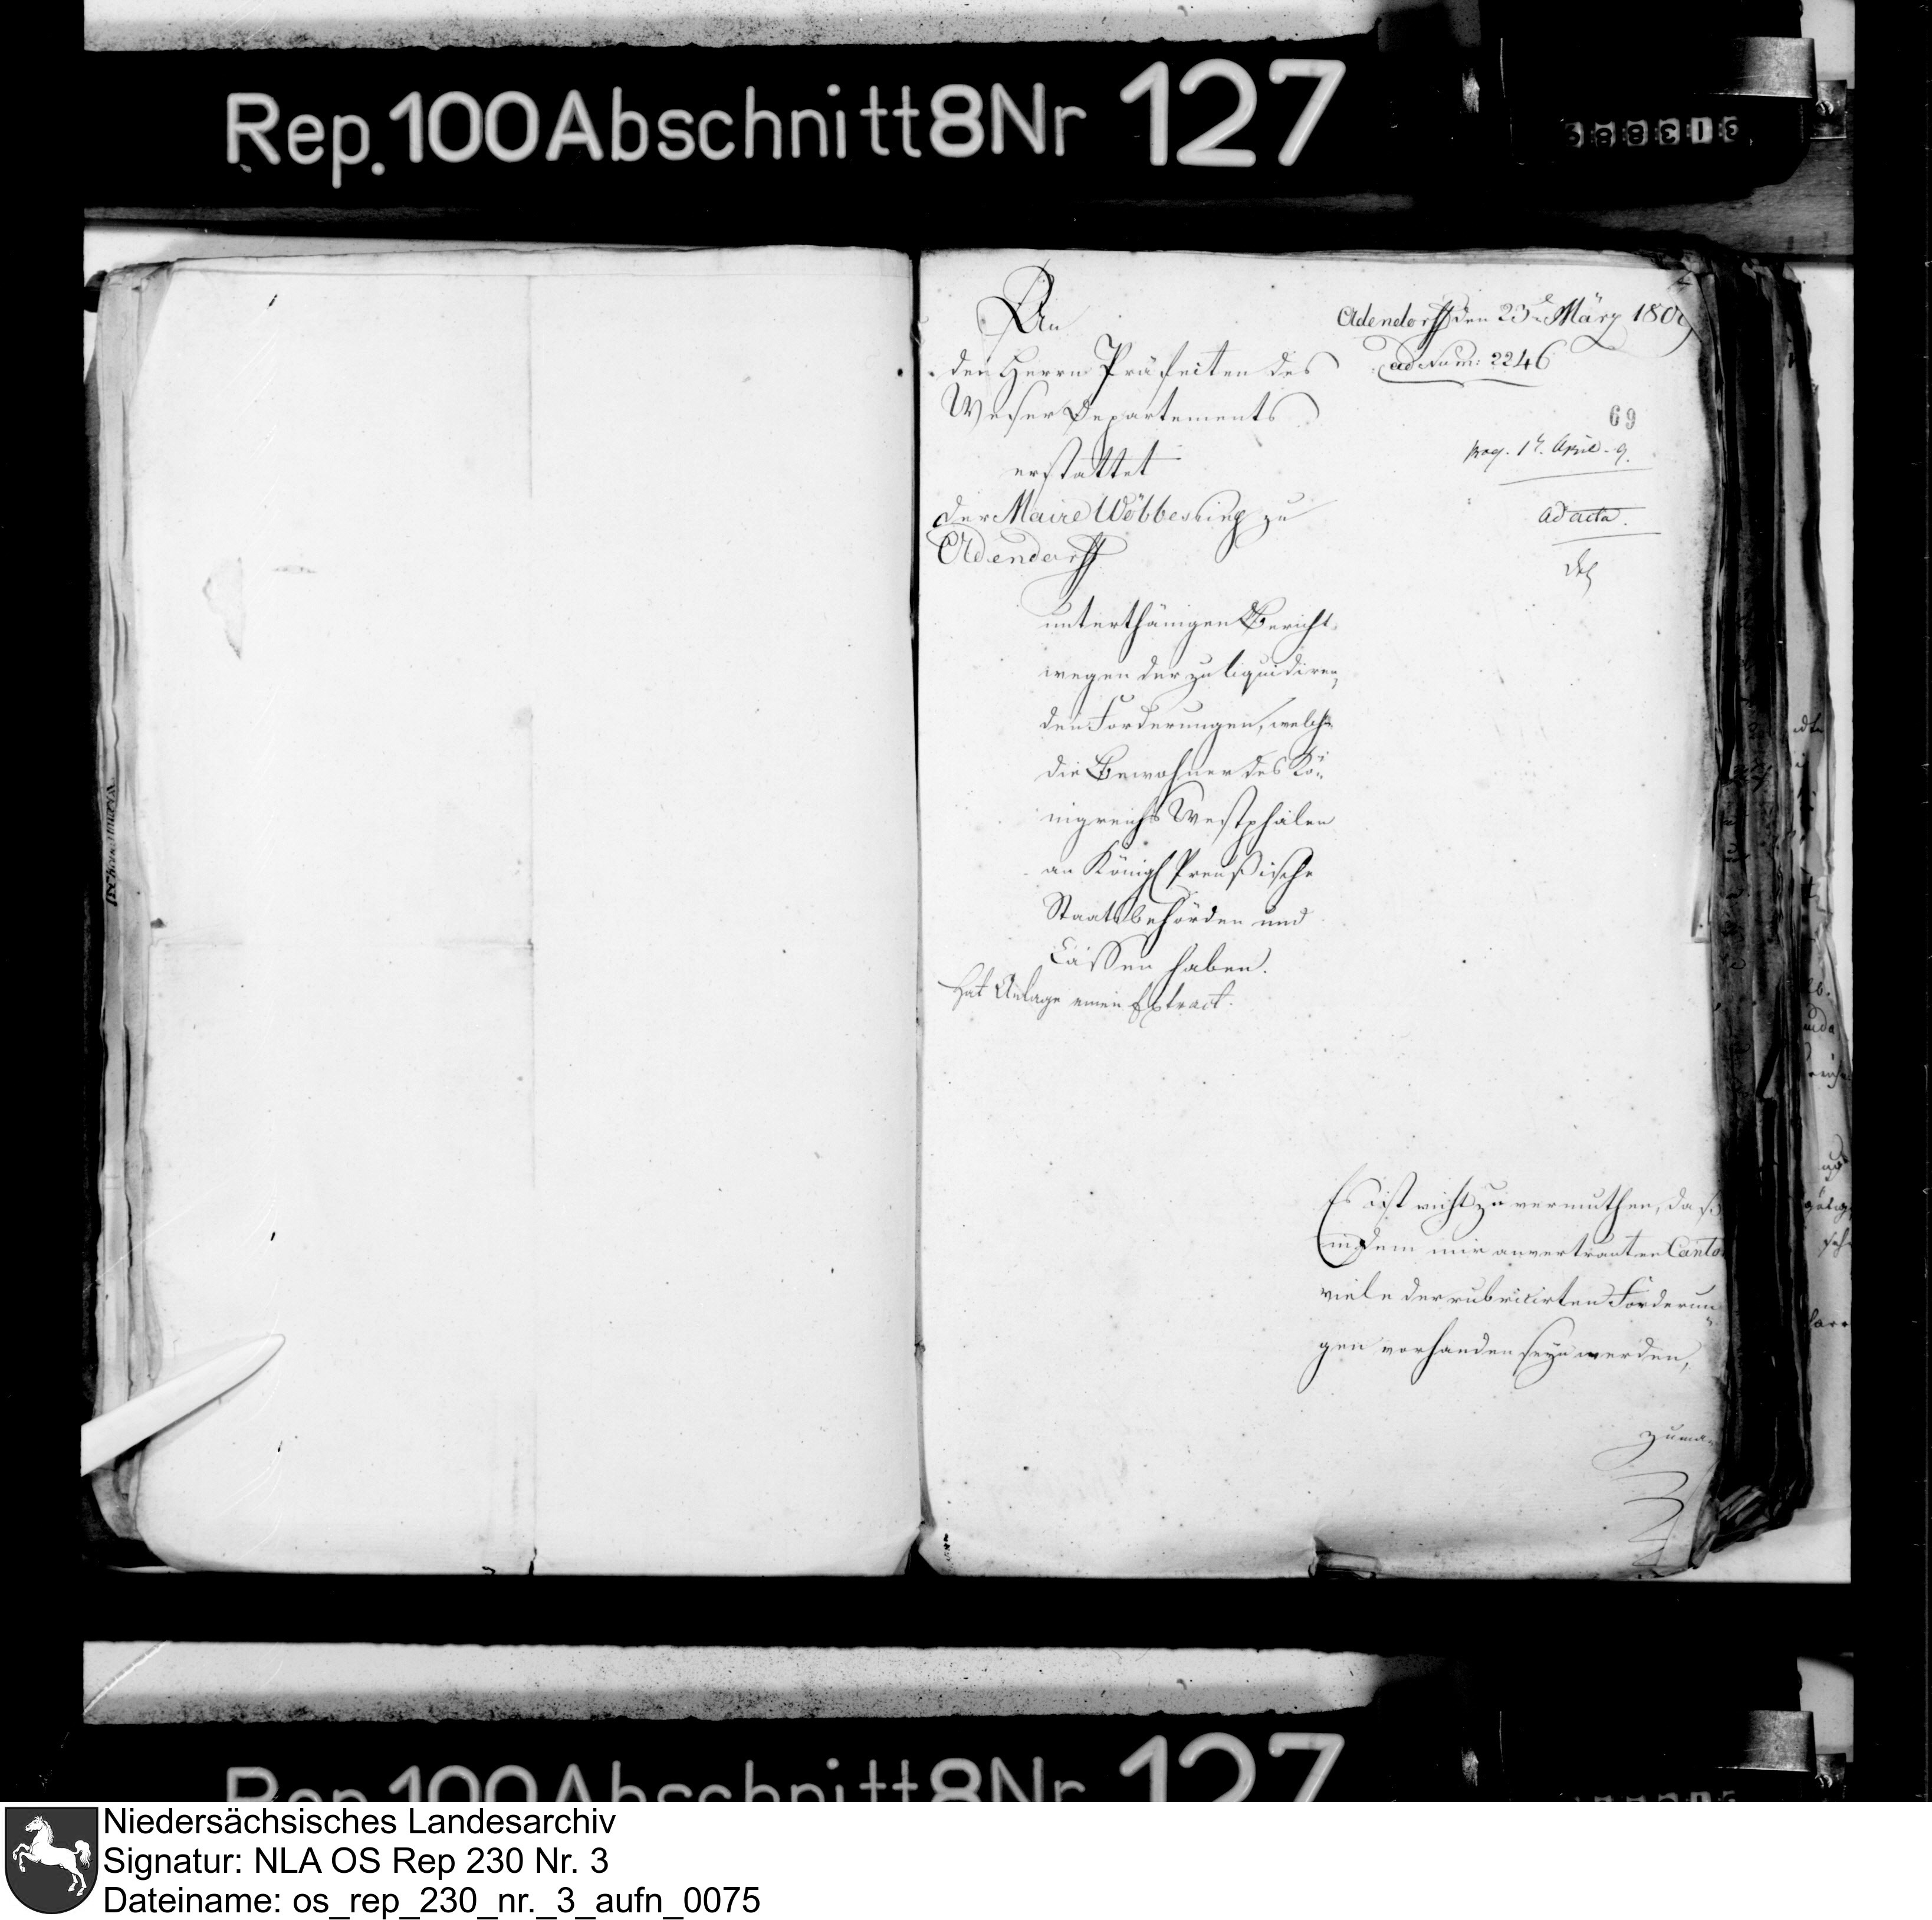 Rep. 100 Abschnitt 8 Nr 127
An
den Herrn Präfecten des
Weser Departements
erstattet
der Maire Wöbbeking zu
Oldendorff
unterthänigen Bericht
wegen der zu liquidiren„
den Forderungen, welche
die Bewohner des Kö„
nigreichs Westphalen
an Königl Preußische
Staatsbehörden und
Cassen haben.
Hat Anlage einen Extract.
Oldendorff den 23t März 1809
ad Num: 2246
69
praes. 1t April. 9.
ad acta.
Es ist nicht zu vermuthen, daß
in dem mir anvertrauten Canton
viele der rubricirten Forderun„
gen vorhanden seyn werden,
zumal
Rep. 100 Abschnitt 8 Nr 127
Niedersächsisches Landesarchiv
Signatur: NLA OS Rep 230 Nr. 3
Dateiname: os_rep_230_nr._3_aufn_0075